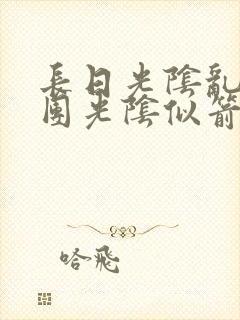 長日光陰亂
團光陰似箭
哈飛